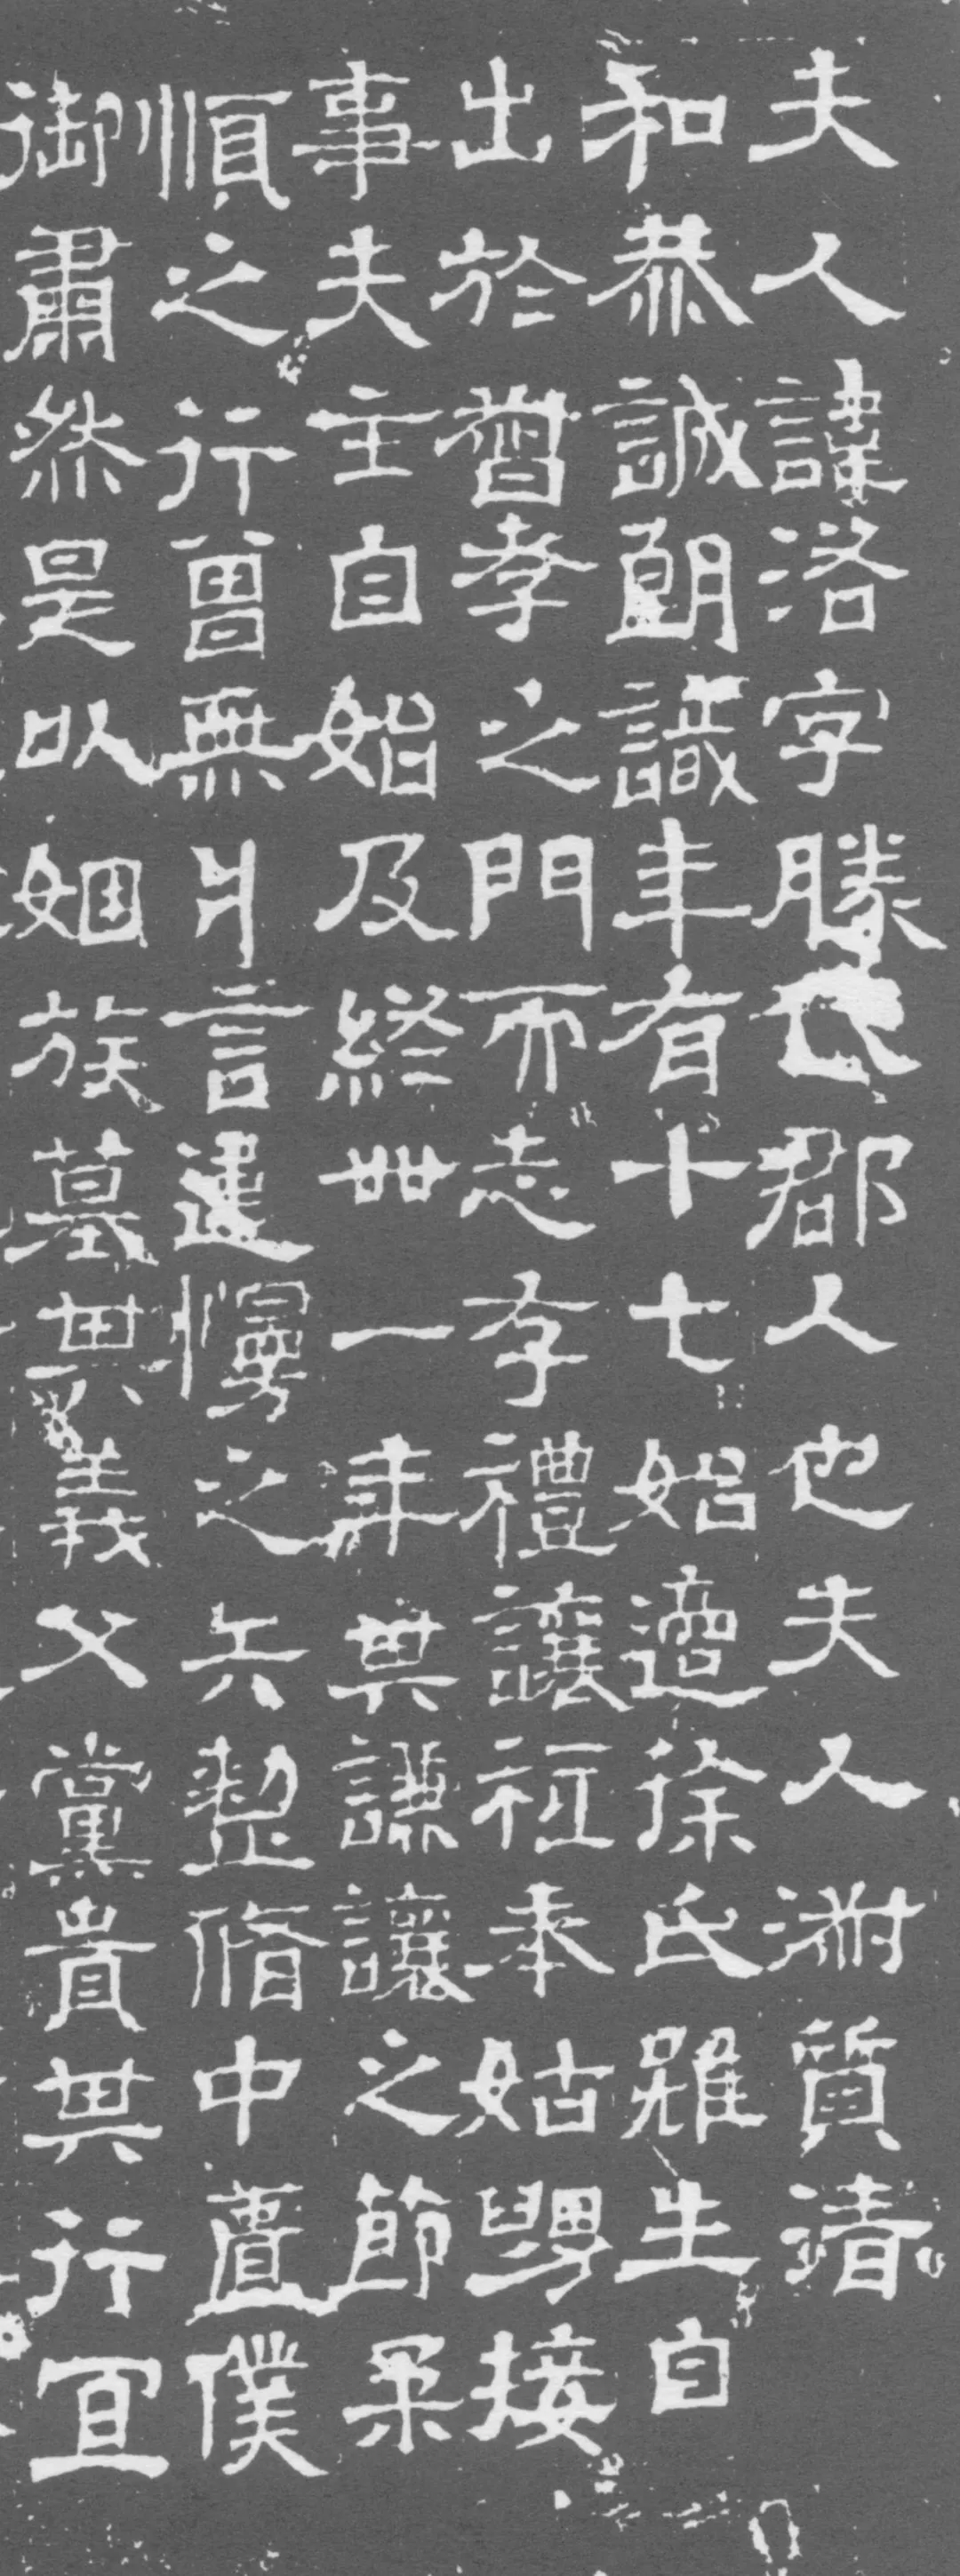 夫人諱洛字勝代郡人也夫人淑質清
和恭誠朗識年有十七始適徐氏雖生自
出於督孝之門而志存禮讓祗奉姑舅接
事夫主自始及終卌一年其謙讓之節柔
順之行曾無片言違慢之矢整脩中匱僕
御肅然是以姻族慕其義父黨貴其行宜